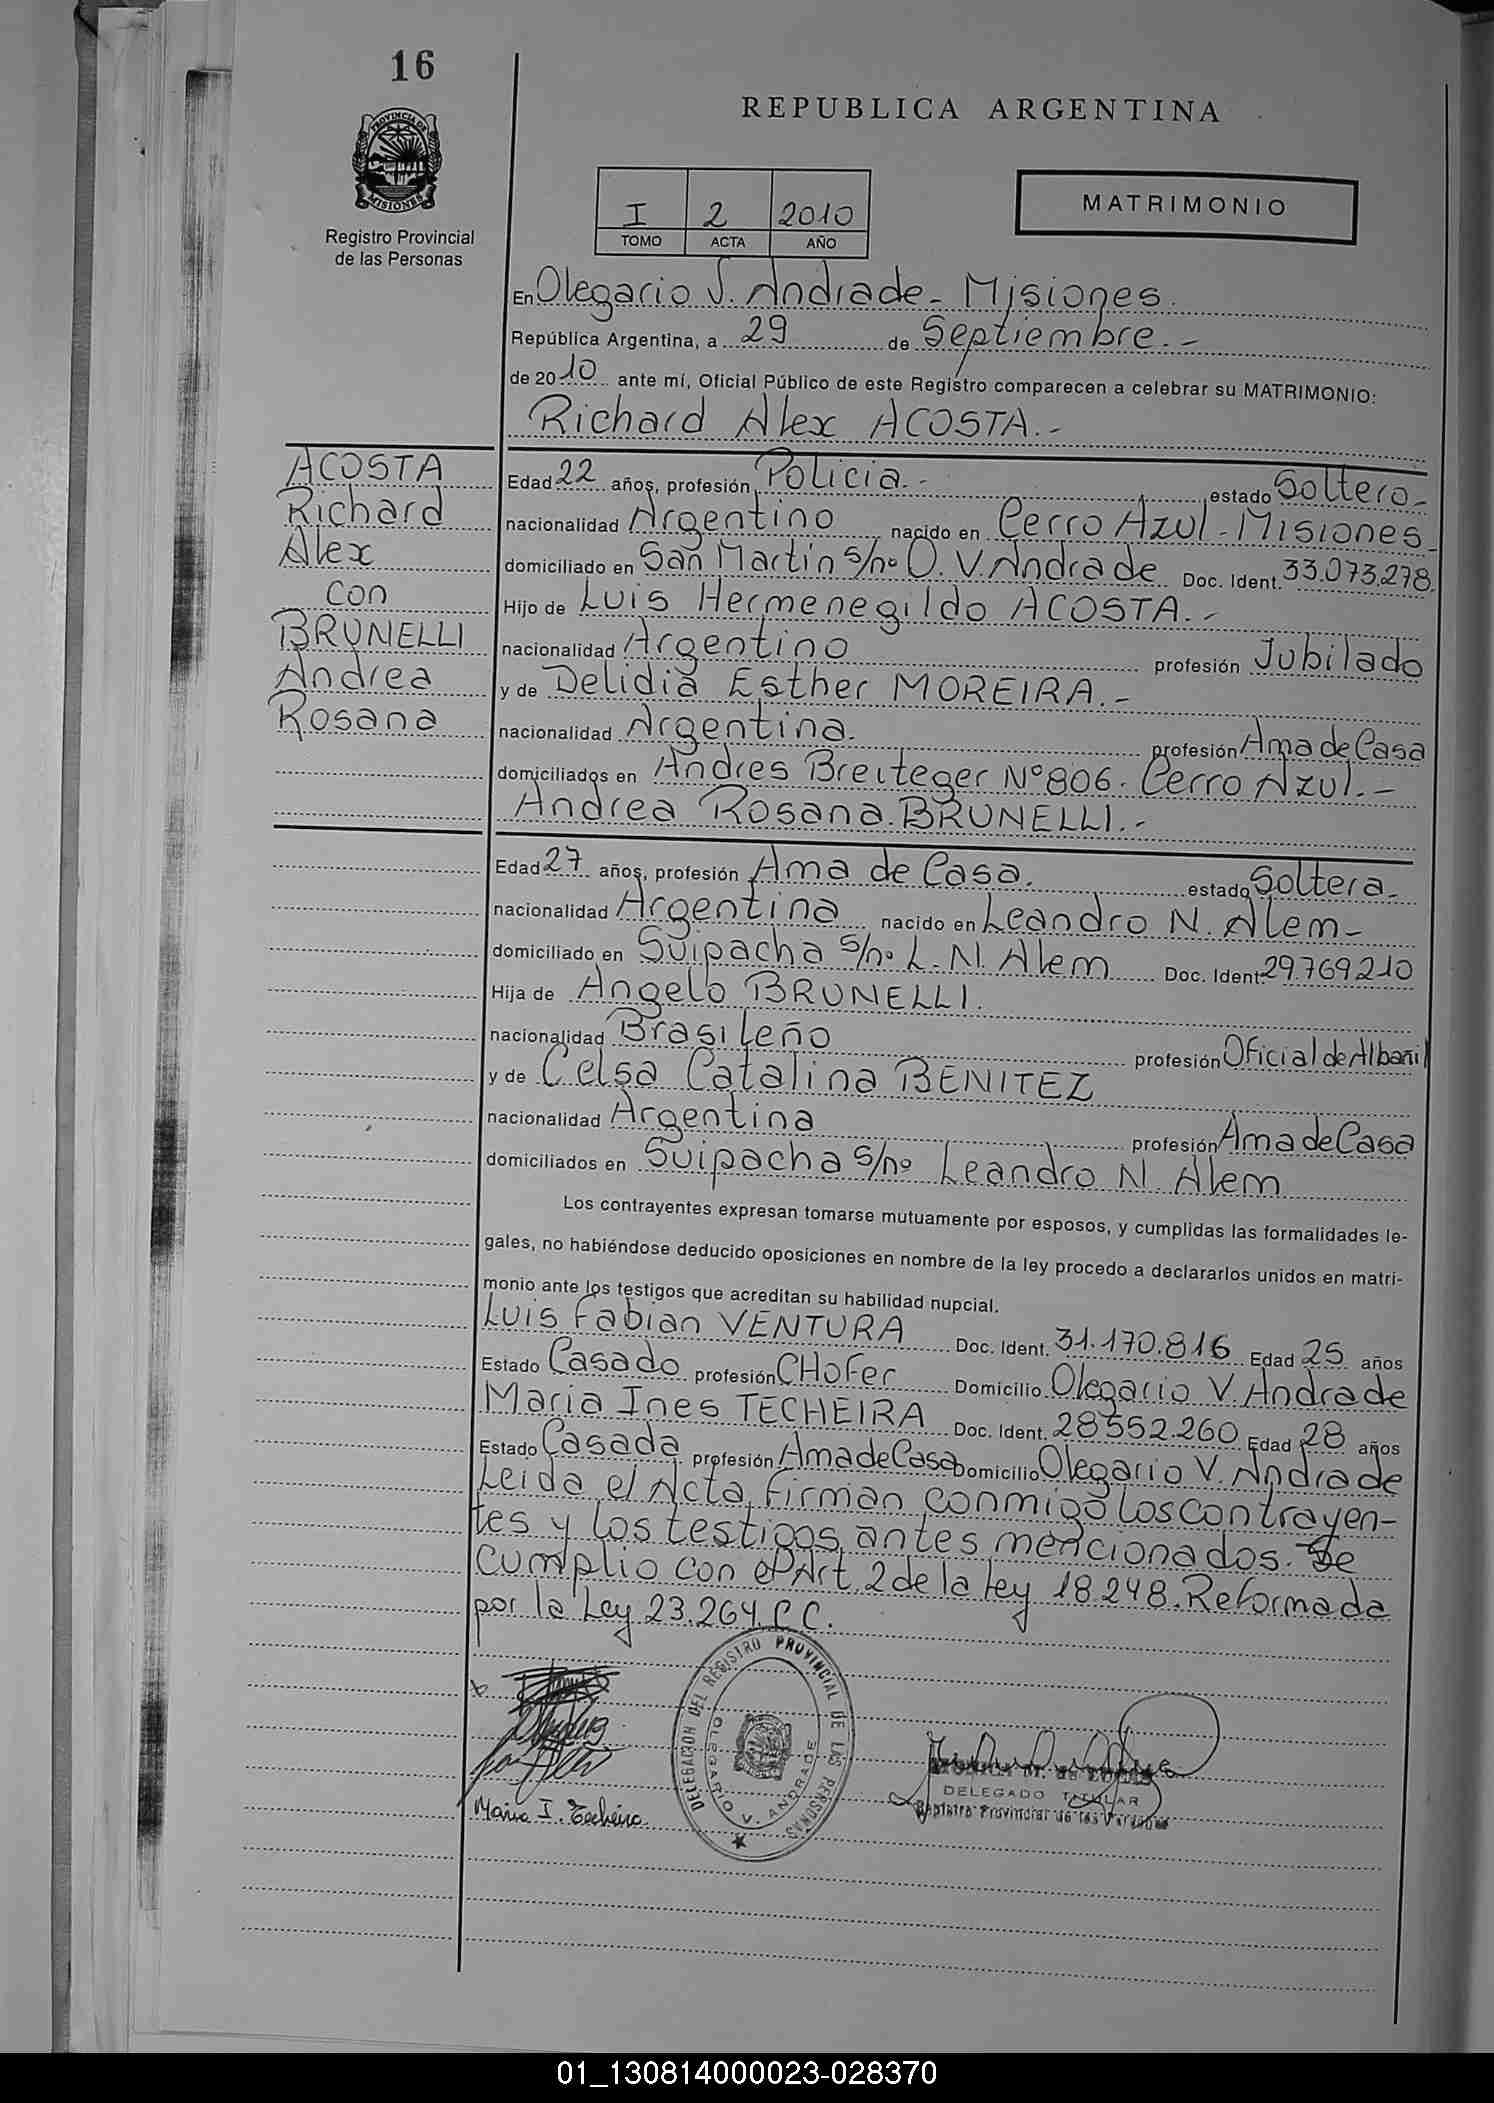 16
REPUBLICA ARGENTINA
PROVINCIA DE
MISIONES
Registro Provincial
de las Personas
I 2 2010
TOMO ACTA AÑO
MATRIMONIO
En Olegario V. Andrade - Misiones.
República Argentina, a 29 de Septiembre.-
de 2010 ante mí, Oficial Público de este Registro comparecen a celebrar su MATRIMONIO:
Richard Alex ACOSTA.-
ACOSTA
Richard
Alex
con
BRUNELLI
Andrea
Rosana
Edad 22 años, profesión Policia.- estado Soltero-
nacionalidad Argentino nacido en Cerro Azul - Misiones
domiciliado en San Martin s/nº O. V. Andrade Doc. Ident. 33.073.278
Hijo de Luis Hermenegildo ACOSTA.-
nacionalidad Argentino profesión Jubilado
y de Delidia Esther MOREIRA.-
nacionalidad Argentina. profesión Ama de Casa
domiciliados en Andres Breiteger Nº 806. Cerro Azul.-
Andrea Rosana BRUNELLI.-
Edad 27 años, profesión Ama de Casa. estado Soltera-
nacionalidad Argentina nacido en Leandro N. Alem-
domiciliado en Suipacha s/nº L. N. Alem Doc. Ident. 29.769.210
Hija de Angelo BRUNELLI.
nacionalidad Brasileño profesión Oficial de Albañil
y de Celsa Catalina BENITEZ
nacionalidad Argentina profesión Ama de Casa
domiciliados en Suipacha s/nº Leandro N. Alem
Los contrayentes expresan tomarse mutuamente por esposos, y cumplidas las formalidades le-
gales, no habiéndose deducido oposiciones en nombre de la ley procedo a declararlos unidos en matri-
monio ante los testigos que acreditan su habilidad nupcial.
Luis Fabian VENTURA Doc. Ident. 31.170.816 Edad 25 años
Estado Casado profesión CHofer Domicilio Olegario V. Andrade
Maria Ines TECHEIRA Doc. Ident. 28552.260 Edad 28 años
Estado Casada profesión Ama de Casa Domicilio Olegario V. Andrade
Leida el Acta, firman conmigo los contrayen-
tes y los testigos antes mencionados. Se
cumplio con el Art. 2 de la ley 18.248. Reformada
por la Ley 23.264. C.C.
DELEGACION DEL REGISTRO PROVINCIAL DE LAS PERSONAS
OLEGARIO V. ANDRADE
Maria I. Techeira
DELEGADO TITULAR
Registro Provincial de las Personas
01_130814000023-028370